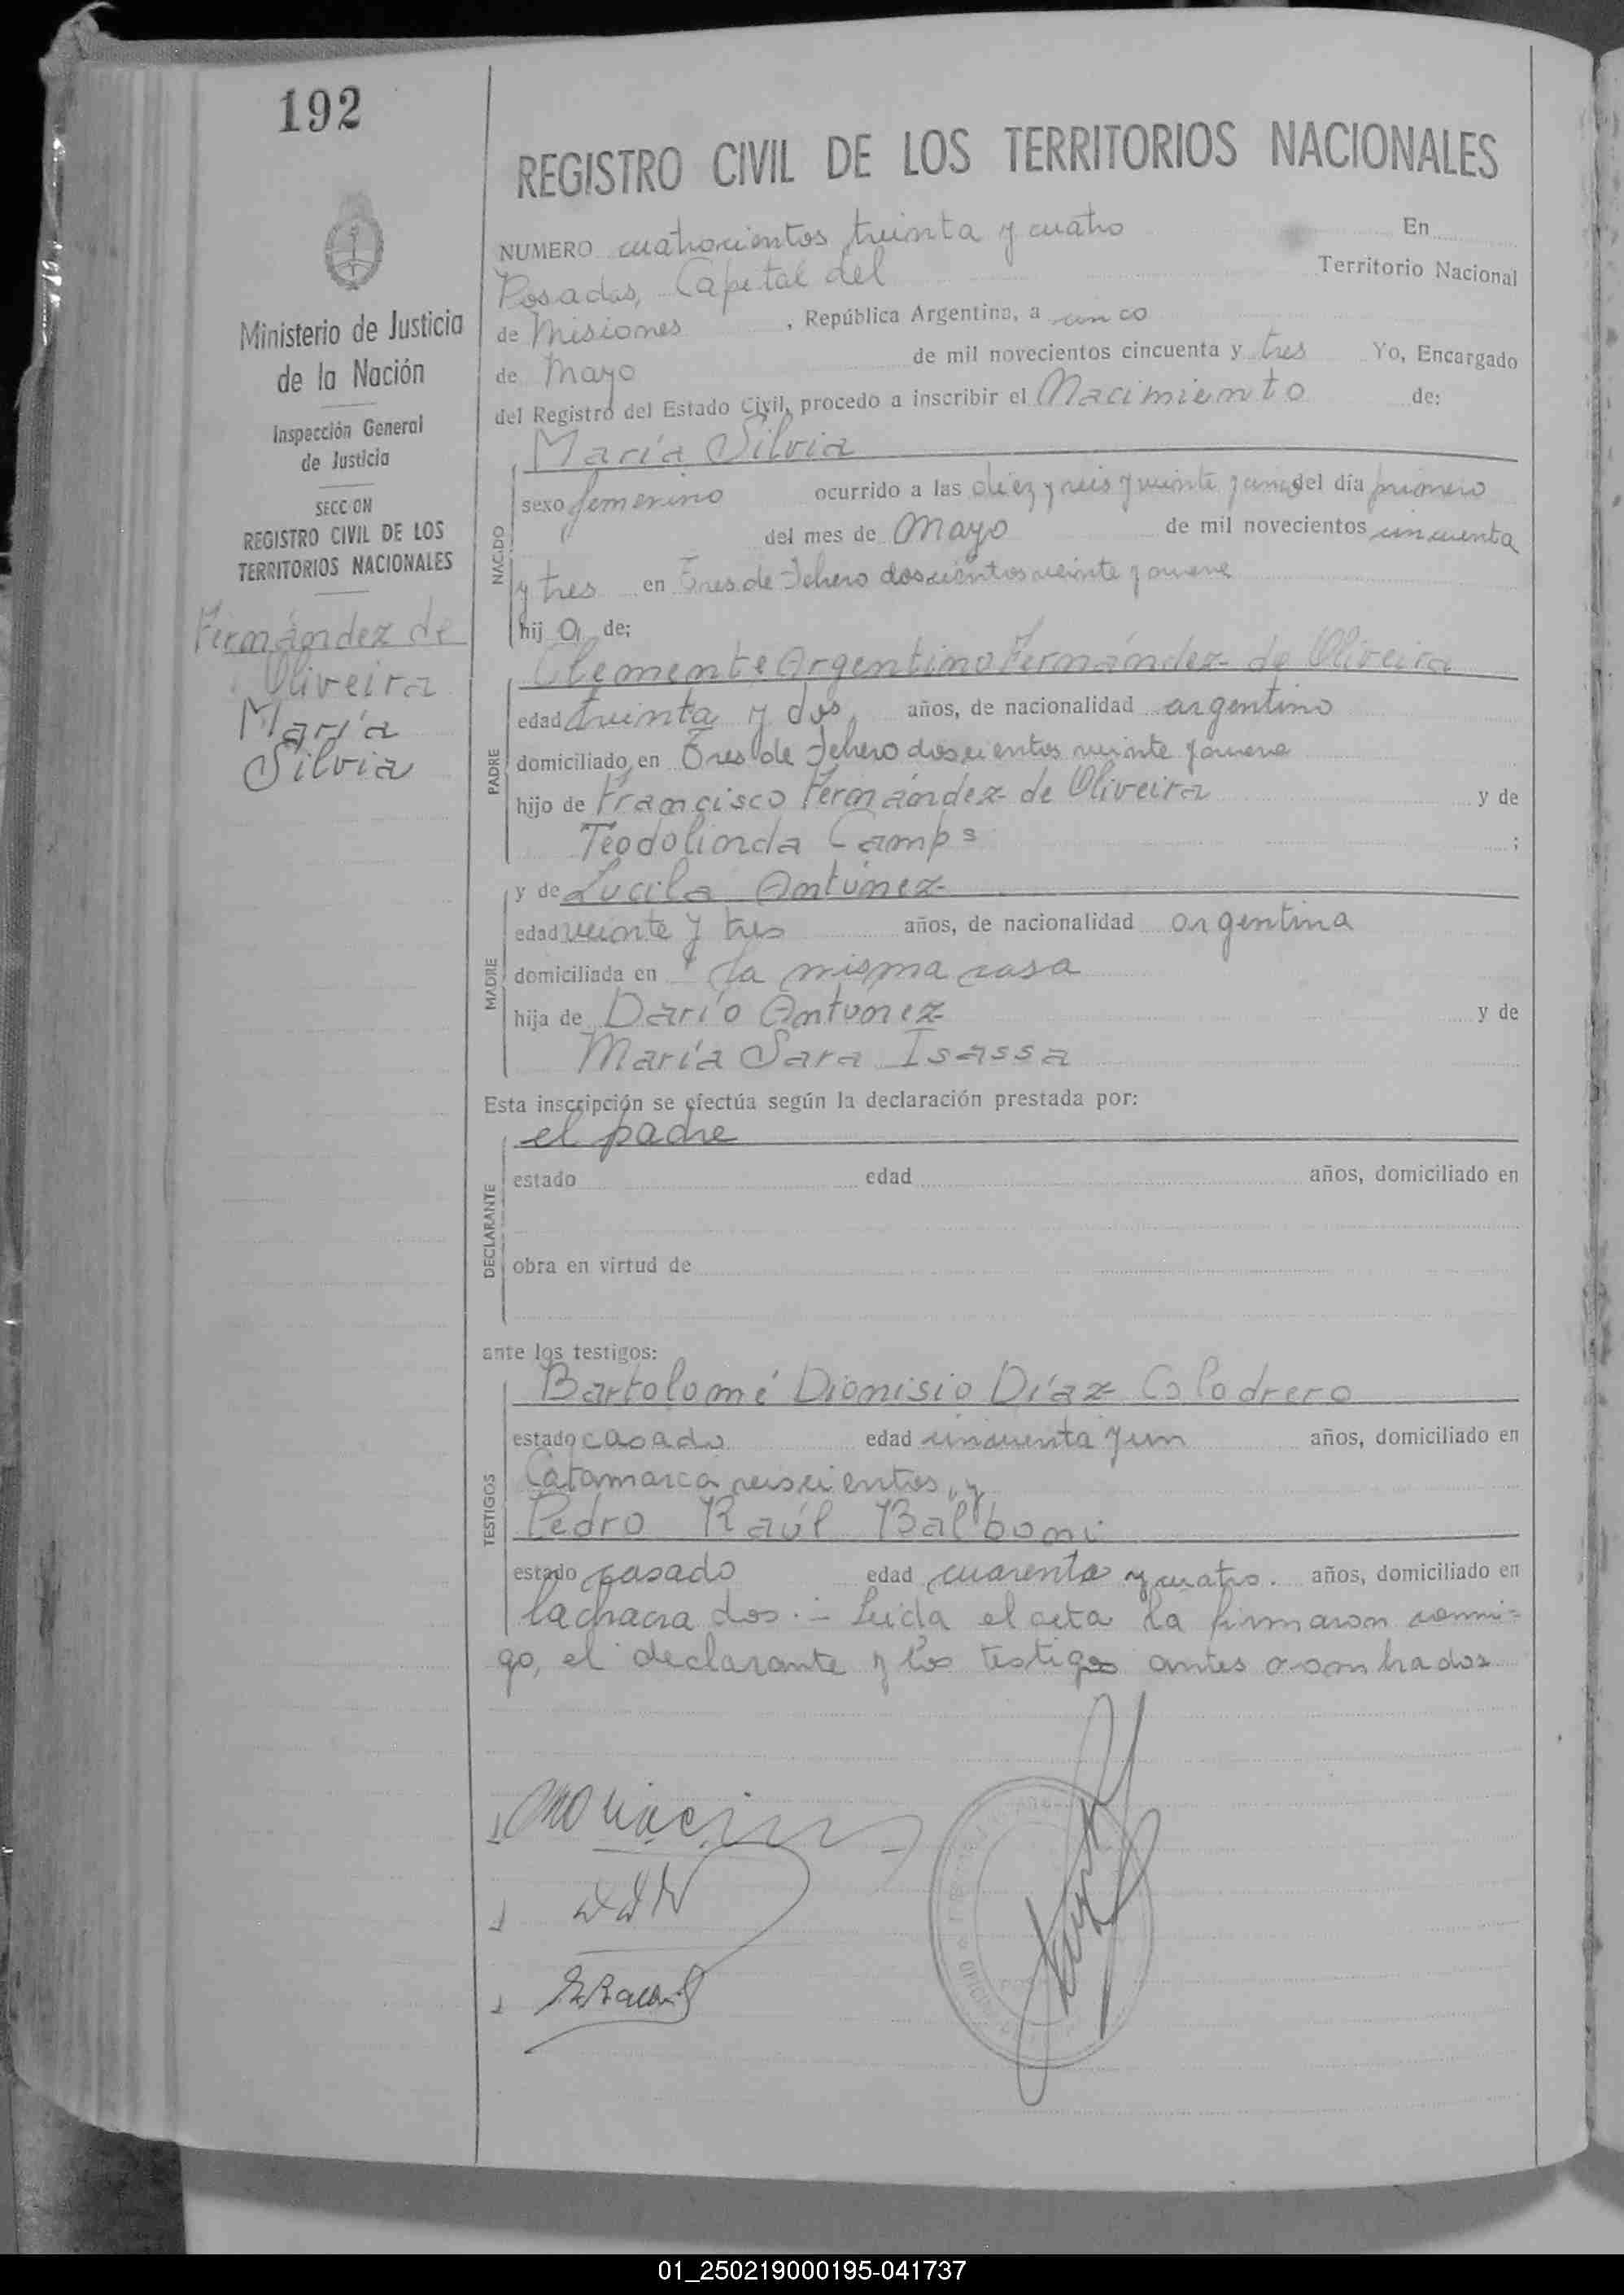 192
REGISTRO CIVIL DE LOS TERRITORIOS NACIONALES
Ministerio de Justicia
de la Nación
Inspección General
de Justicia
SECCION
REGISTRO CIVIL DE LOS
TERRITORIOS NACIONALES
Fernández de
Oliveira
María
Silvia
NUMERO cuatrocientos treinta y cuatro En
Posadas, Capital del Territorio Nacional
de Misiones , República Argentina, a cinco
de Mayo de mil novecientos cincuenta y tres Yo, Encargado
del Registro del Estado Civil, procedo a inscribir el Nacimiento de:
NACIDO
María Silvia
sexo femenino ocurrido a las diez y seis y veinte y cinco del día primero
del mes de Mayo de mil novecientos cincuenta
y tres en Tres de Febrero doscientos veinte y nueve
hij a de;
PADRE
Clemente Argentino Fernández de Oliveira
edad treinta y dos años, de nacionalidad argentino
domiciliado en Tres de Febrero doscientos veinte y nueve
hijo de Francisco Fernández de Oliveira y de
Teodolinda Camps ;
MADRE
y de Lucila Antúnez
edad veinte y tres años, de nacionalidad argentina
domiciliada en la misma casa
hija de Darío Antunez y de
María Sara Isassa
Esta inscripción se efectúa según la declaración prestada por:
DECLARANTE
el padre
estado edad años, domiciliado en
obra en virtud de
ante los testigos:
TESTIGOS
Bartolomé Dionisio Díaz Colodrero
estado casado edad cincuenta y un años, domiciliado en
Catamarca seiscientos, y
Pedro Raúl Balboni
estado casado edad cuarenta y cuatro. años, domiciliado en
la chacra dos.- Leída el acta la firmaron conmi=
go, el declarante y los testigos antes nombrados
01_250219000195-041737